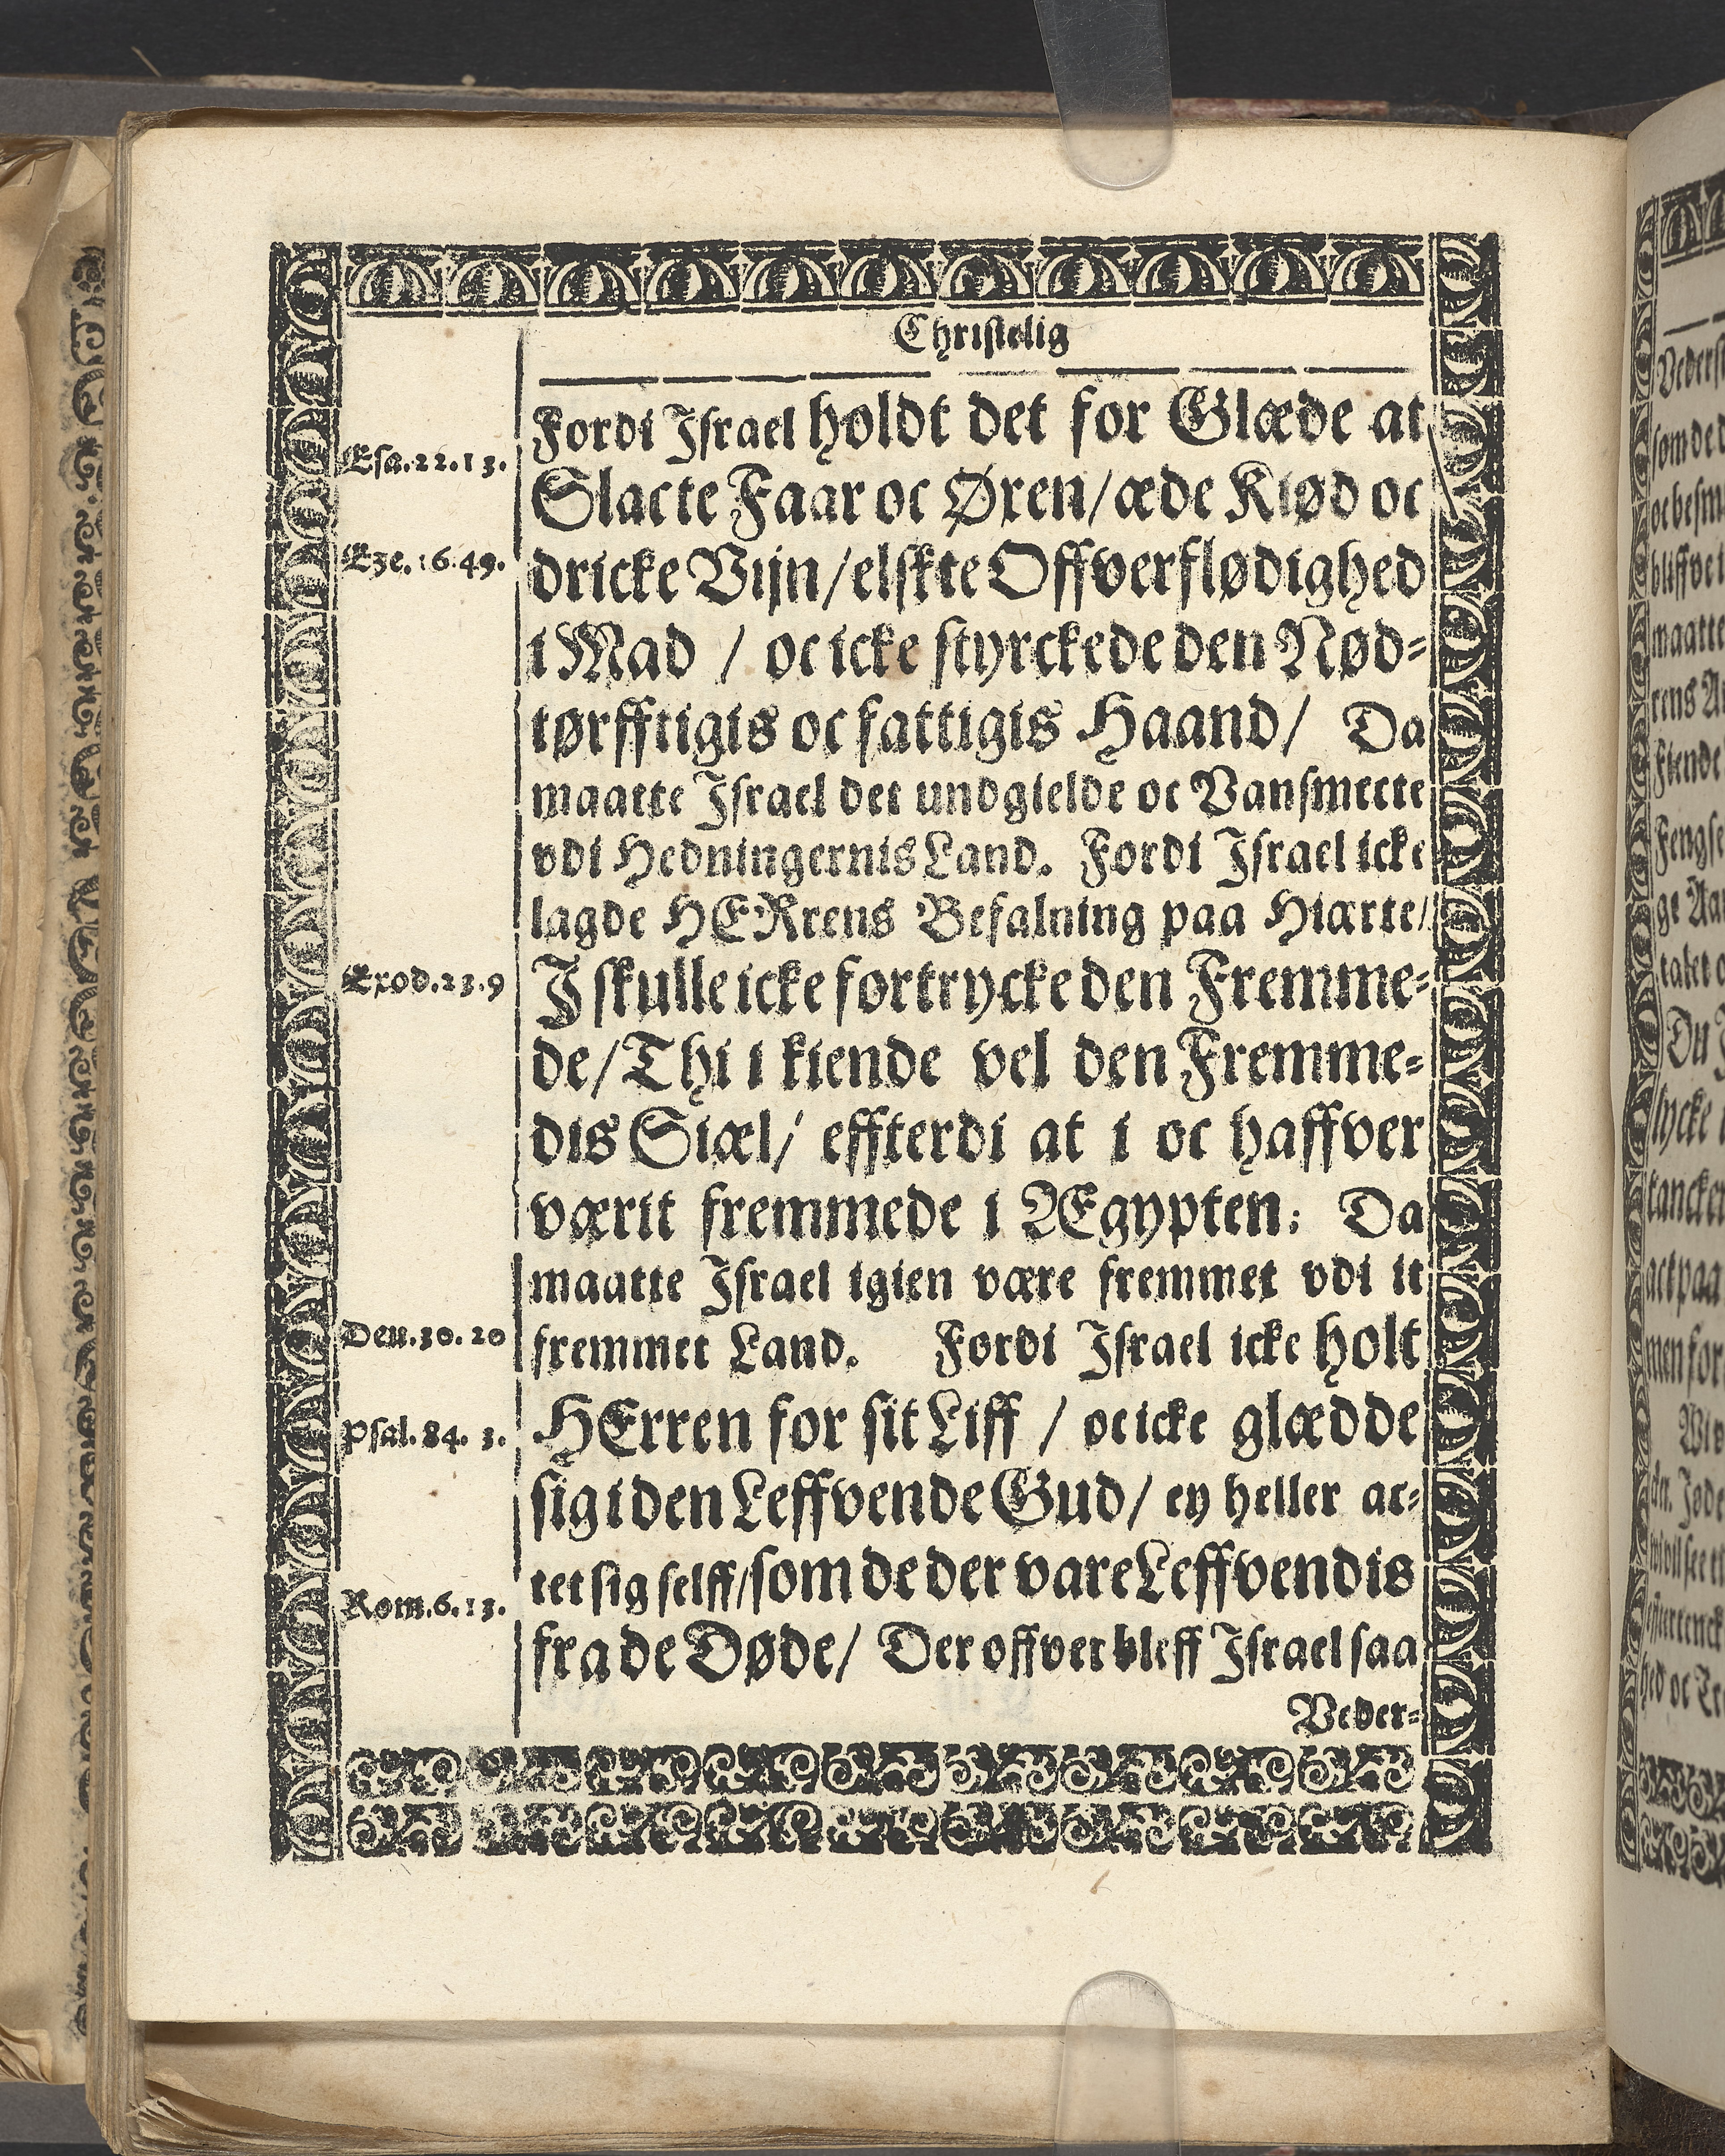 Christelig
Esa.22.13.
Eze.16.49.
Exod.23.9
Deu.30.20
Psal.84.3.
Rom.6.13.
Fordi Israel holdt det for Glæde at
Slacte Faar oc Øxen/æde Kiød oc
dricke Vijn/elskte Offverflødighed
i Mad / oc icke styrckede den Nød-
tørfftigis oc fattigis Haand/ Da
maatte Israel det undgielde oc Vansmecte
vdi Hedningernis Land. Fordi Israel icke
lagde HERrens Befalning paa Hiærte/
I skulle icke fortrycke den Fremme-
de/Thi i kiende vel den Fremme-
dis Siæl/ effterdi at i oc haffver
værit fremmede i Ægypten: Da
maatte Israel igien være fremmet vdi it
fremmet Land. Fordi Israel icke holt
HErren for sit Liff / oc icke glædde
sig i den Leffvende Gud/ ey heller ac-
tet sig selff/som de der vare Leffvendis
fra de Døde/ Der offver bleff Israel saa
Veder-